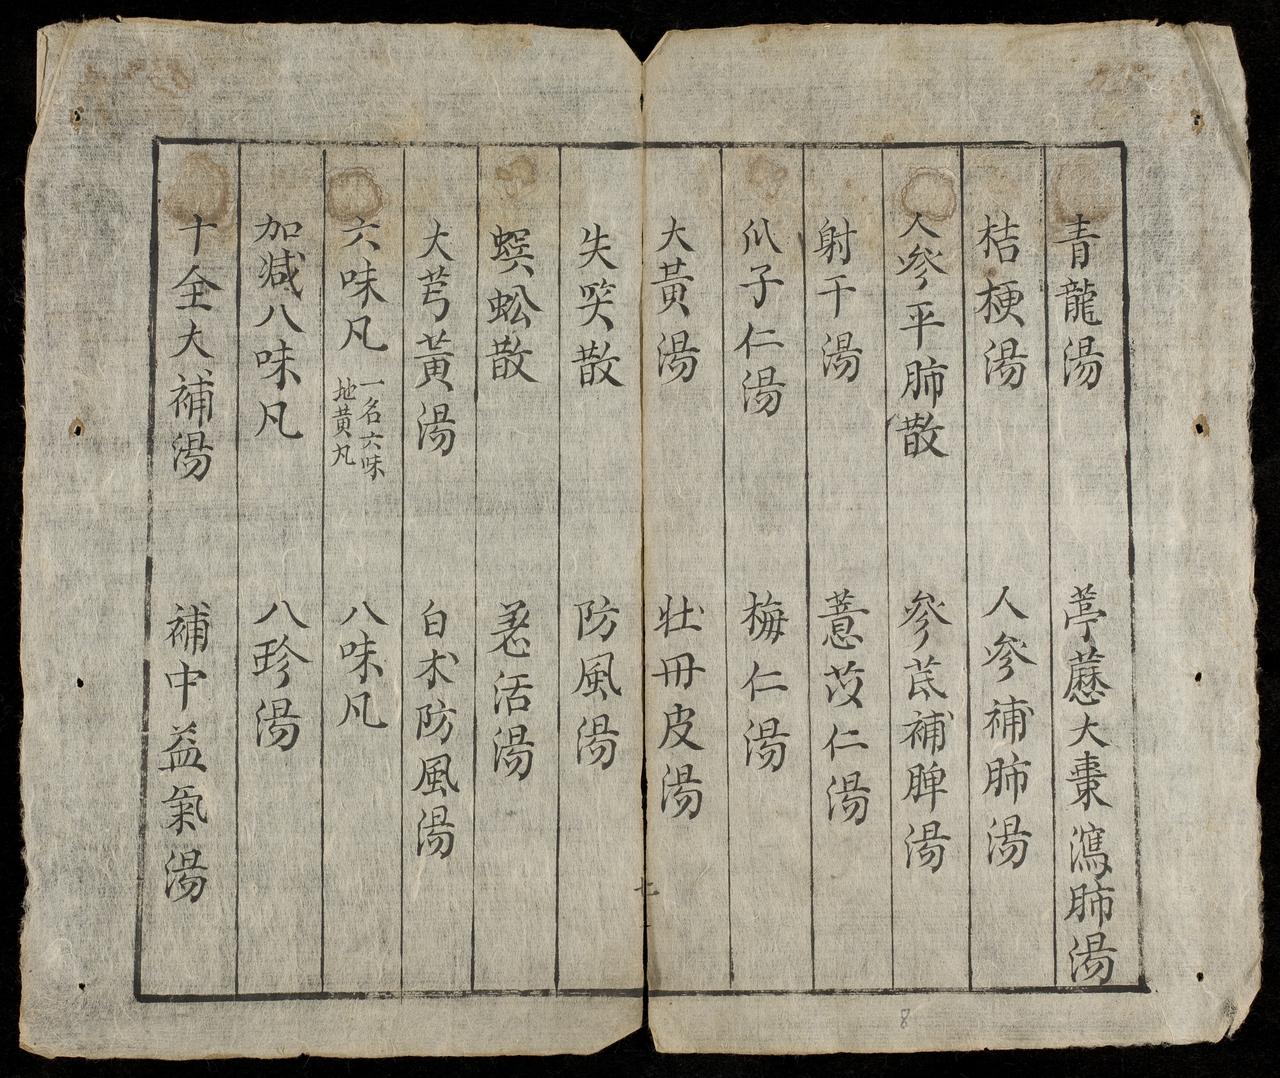 青龍湯 葶藶大棗瀉肺湯
桔梗湯 人參補肺湯
人參平肺散 參芪補脾湯
射干湯 薏苡仁湯
爪子仁湯 梅仁湯
大黃湯 牡丹皮湯
七
失笑散 防風湯
蜈蚣散 羌活湯
大芎黃湯 白朮防風湯
六味凡 一名六味地黃丸 八味凡
加減八味凡 八珍湯
十全大補湯 補中益氣湯
8